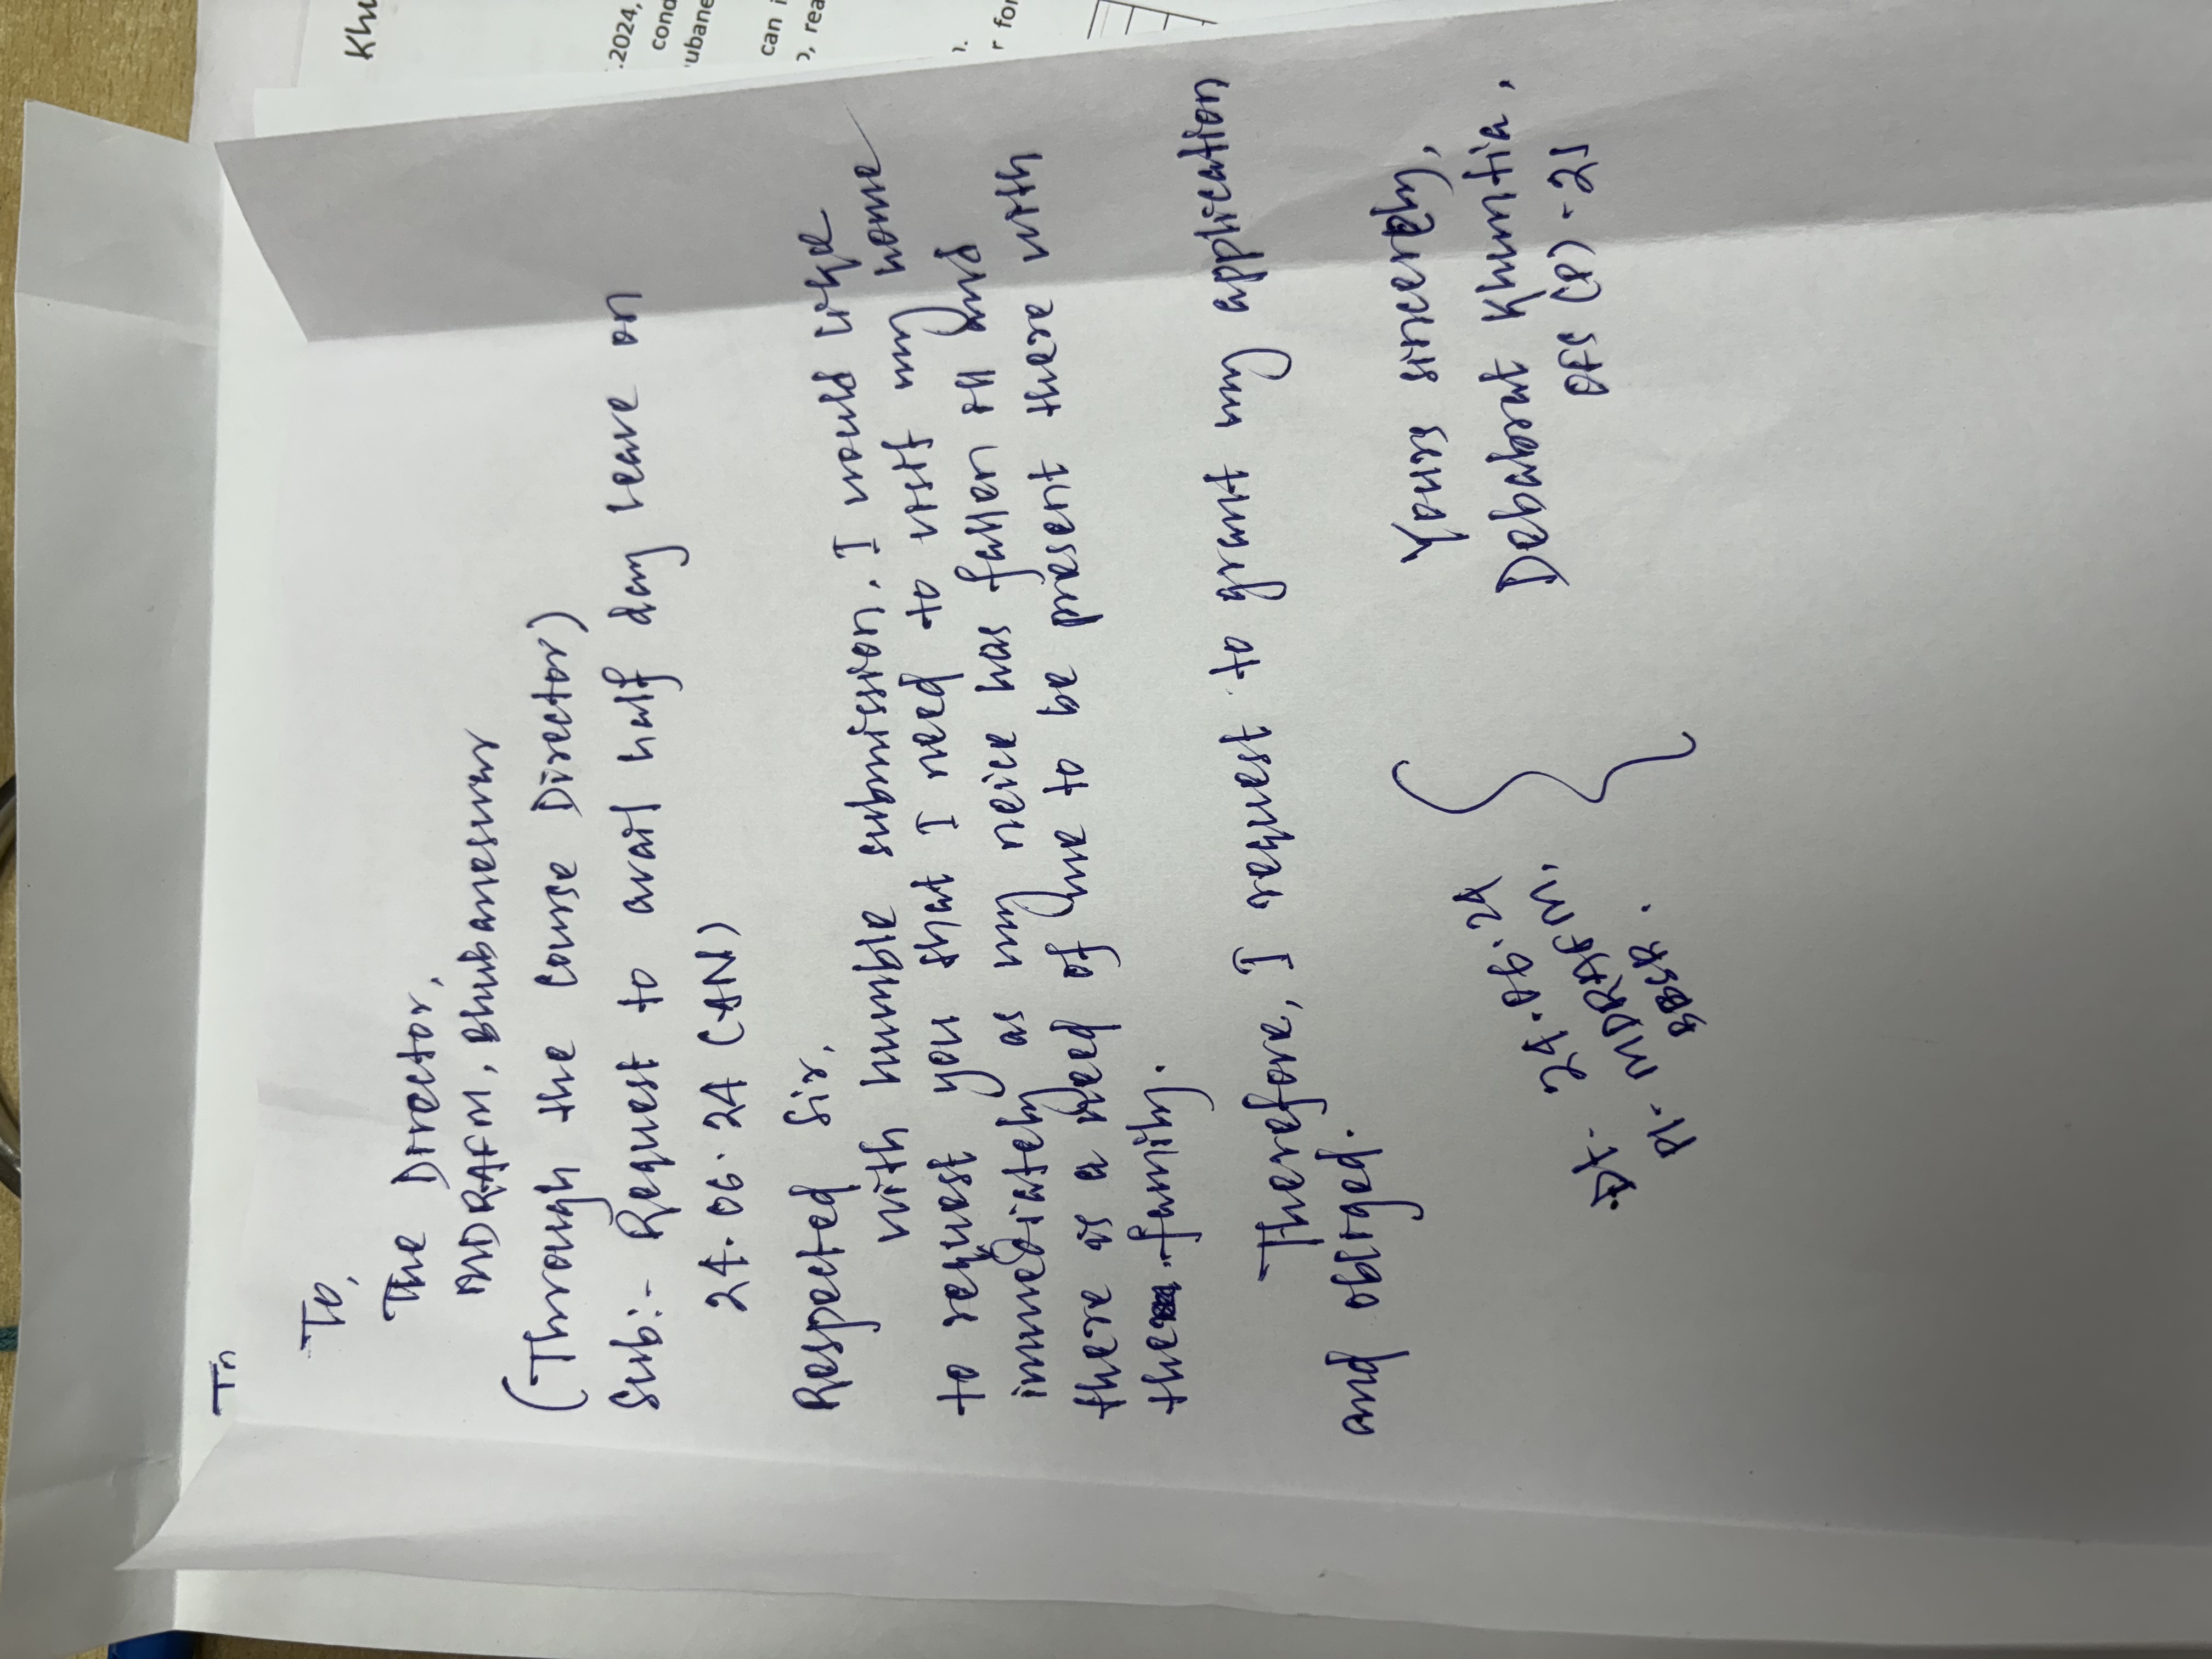 To
To,
The Director,
MDRAFM, Bhubaneswar
(Through the Course Director)
Sub:- Request to avail half day leave on
24.06.24 (AN)
Respected Sir,
With humble submission, I would like
to request you that I need to visit my home
immediately as my neice has fallen ill and
there is a need of me to be present there with
the family.
Therefore, I request to grant my application
and obliged.
Yours sincerely,
Debabrat Khuntia,
OFS (P) - 21
Dt- 24.06.24
Pl- MDRAFM,
BBSR.
Khu
.2024,
cond
ubane
can i
o, rea
r for